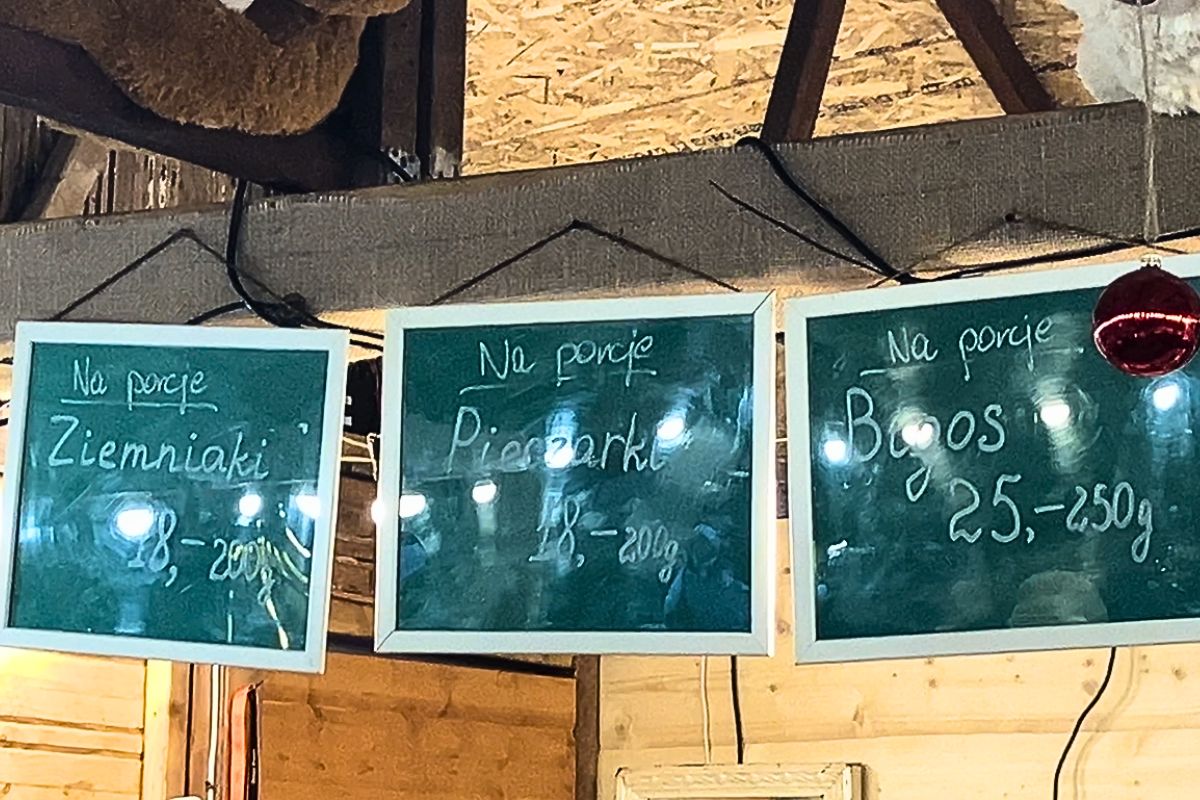 Na porcje
Ziemniaki
18,- 200g
Na porcje
Pieczarki
18,- 200g
Na porcje
Bigos
25,- 250g